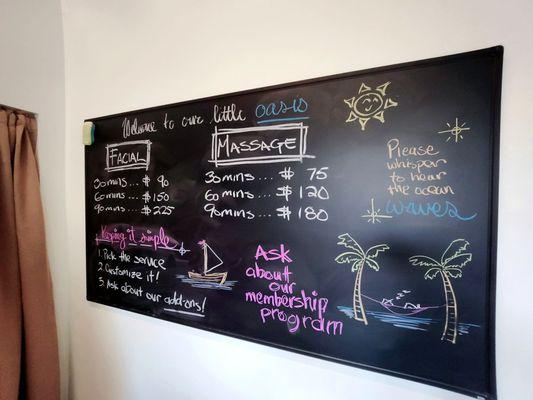 Welcome to our little oasis
FACIAL
30 mins... $ 90
60 mins... $ 150
90 mins... $ 225
MASSAGE
30 mins... $ 75
60 mins... $ 120
90 mins... $ 180
Please
whisper
to hear
the ocean
waves
Keeping it simple
1. Pick the service
2. Customize it!
3. Ask about our add-ons!
Ask
about
our
membership
program